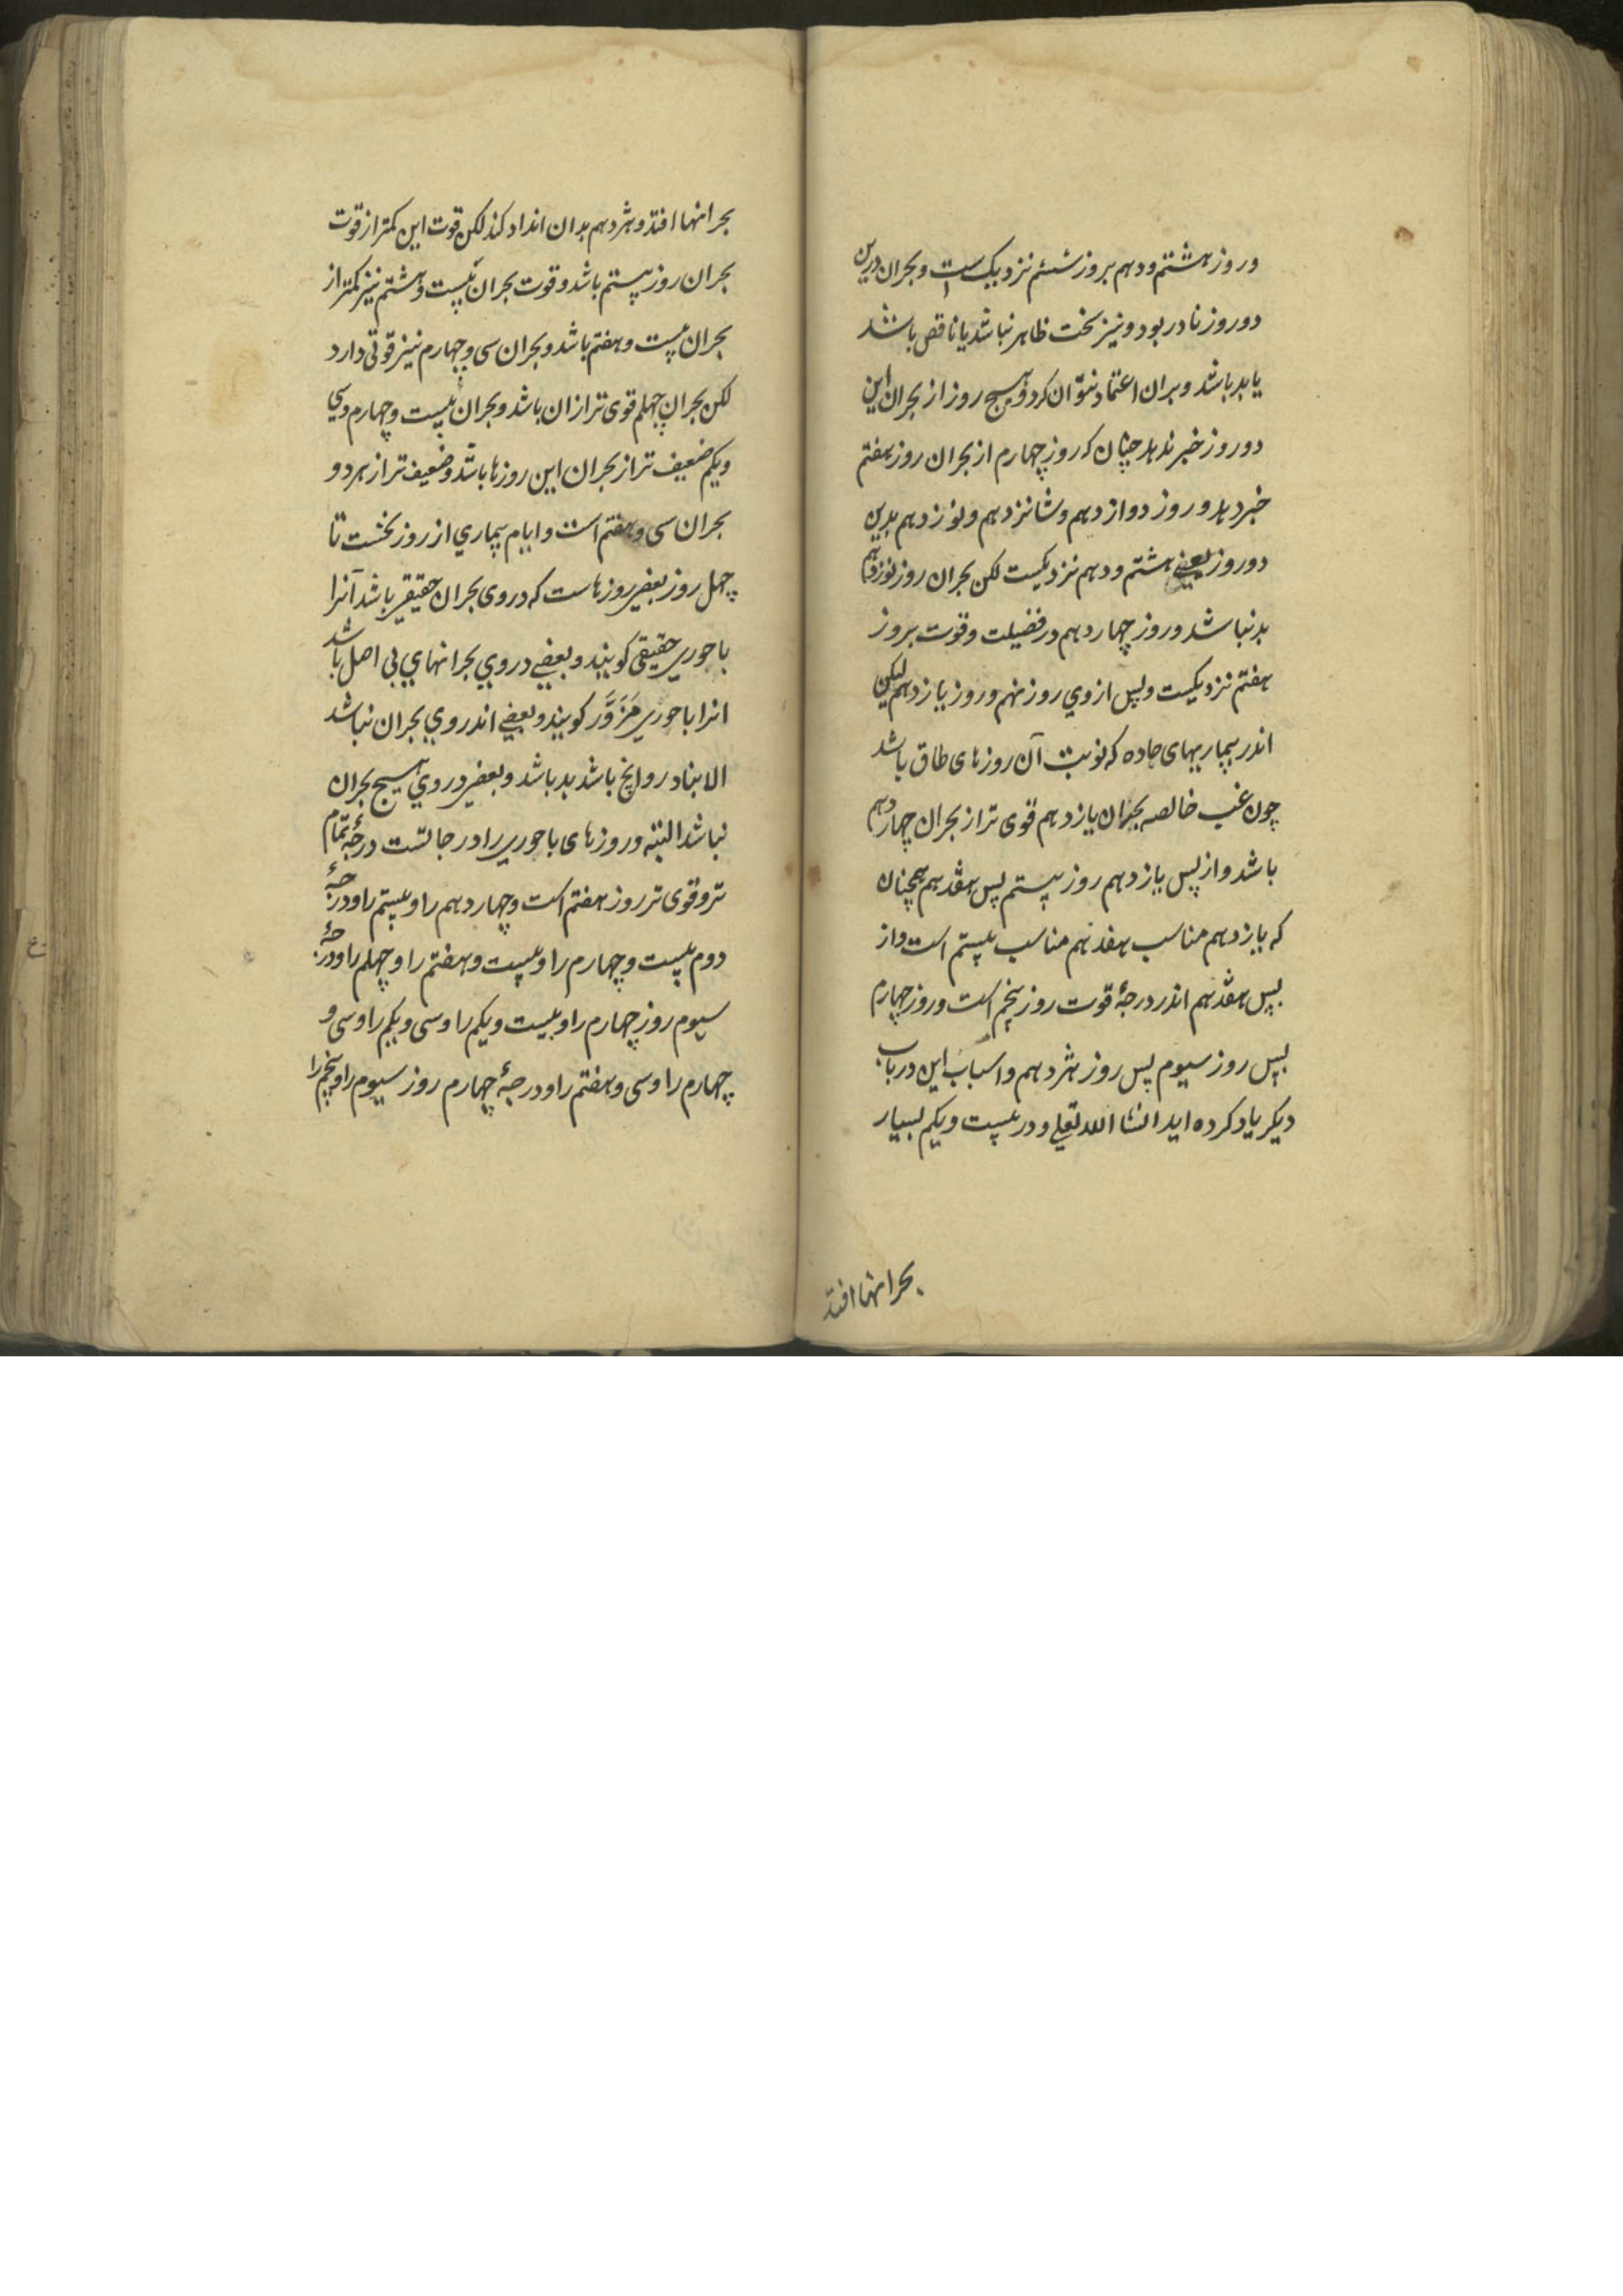 و روز هشتم و دهم بروز ششم نزدیک است و بحران درین
دو روز نادر بود و نیز سخت ظاهر نباشد یا ناقص باشد
یا بد باشد و بران اعتماد نتوان کرد و هیچ روز از بحران این
دو روز خبر ندهد چنان که روز چهارم از بحران روز هفتم
خبر دهد و روز دوازدهم و شانزدهم و نوزدهم بدین
دو روز یعنی هشتم و دهم نزدیکست لکن بحران روز نوزدهم
بد نباشد و روز چهاردهم در فضیلت و قوت بروز
هفتم نزدیکست و پس از وی روز نهم و روز یازدهم لیکن
اندر بیماریهای حاده که نوبت آن روزهای طاق باشد
چون غب خالصه بحران یازدهم قوی تر از بحران چهاردهم
باشد و از پس یازدهم روز بیستم پس هفدهم همچنان
که یازدهم مناسب هفدهم مناسب بیستم است و از
پس هفدهم اندر درجهٔ قوت روز پنجم است و روز چهارم
پس روز سیوم پس روز هژدهم و اسباب این در باب
دیکر یاد کرده اید انشا الله تعلی و در بیست و یکم بسیار
بحرانها افتد
بحرانها افتد و هژدهم بدان انداد کند لکن قوت این کمتر از قوت
بحران روز بیستم باشد و قوت بحران بیست و هشتم نیز کمتر از
بحران بیست و هفتم باشد و بحران سی و چهارم نیز قوتی دارد
لکن بحران چهلم قوی تر ازان باشد و بحران بیست و چهارم و سی
و یکم ضعیف تر از بحران این روزها باشد و ضعیف تر از هر دو
بحران سی و هفتم است و ایام بیماری از روز نخست تا
چهل روز بعضی روزهاست که در وی بحران حقیقی باشد آنرا
باحوری حقیقی کویند و بعضی در وی بحرانهای بی اصل باشد
انرا باحوری مزور کویند و بعضی اندر وی بحران نباشد
الا بنادر و انچ باشد بد باشد و بعضی در وی هیچ بحران
نباشد البته و روزهای باحوری را درجاتست درجهٔ تمام
تر و قوی تر روز هفتم است و چهاردهم را و بیستم را و درجهٔ
دوم بیست و چهارم را و بیست و هفتم را و چهلم را و درجهٔ
سیوم روز چهارم را و بیست و یکم را و سی و یکم را و سی و
چهارم را و سی و هفتم را و درجهٔ چهارم روز سیوم را و پنجم را